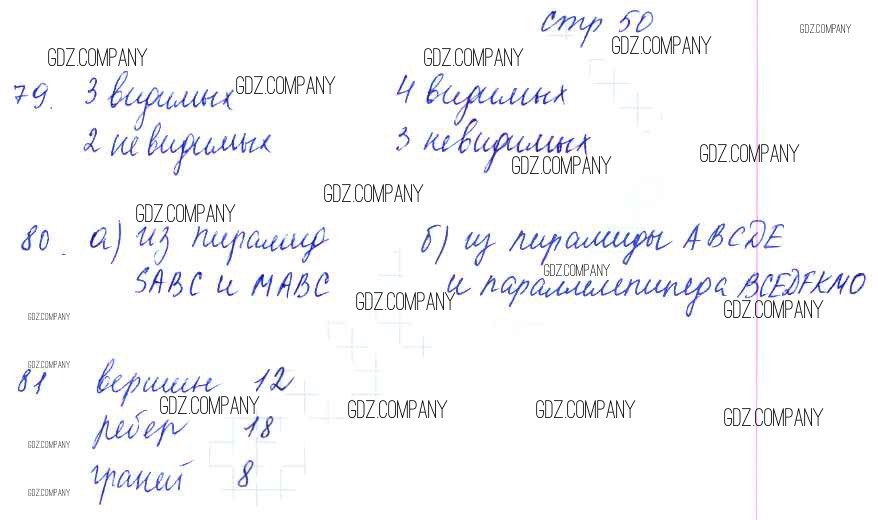 стр 50
GDZ.COMPANY
GDZ.COMPANY GDZ.COMPANY GDZ.COMPANY
GDZ.COMPANY
79. 3 видимых 4 видимых
2 невидимых 3 невидимых
GDZ.COMPANY GDZ.COMPANY
GDZ.COMPANY
GDZ.COMPANY
80. а) из пирамид б) из пирамиды ABCDE
GDZ.COMPANY
SABC и MABC и параллелепипеда BCEDFKMO
GDZ.COMPANY GDZ.COMPANY
GDZ.COMPANY
GDZ.COMPANY
81 вершин 12
GDZ.COMPANY GDZ.COMPANY GDZ.COMPANY GDZ.COMPANY
ребер 18
GDZ.COMPANY
граней 8
GDZ.COMPANY